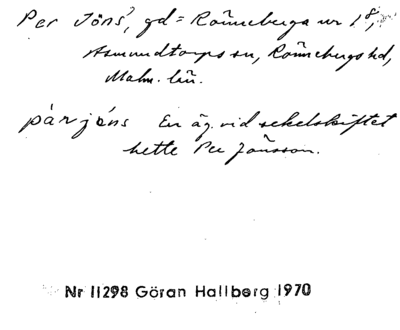 Per Jöns', gd = Rönneberga nr 18,
Asmundtorps sn, Rönnebergs hd,
Malm. län.
pàr jöns En äg. vid sekelskiftet
hette Per Jönsson.
Nr 11298 Göran Hallberg 1970